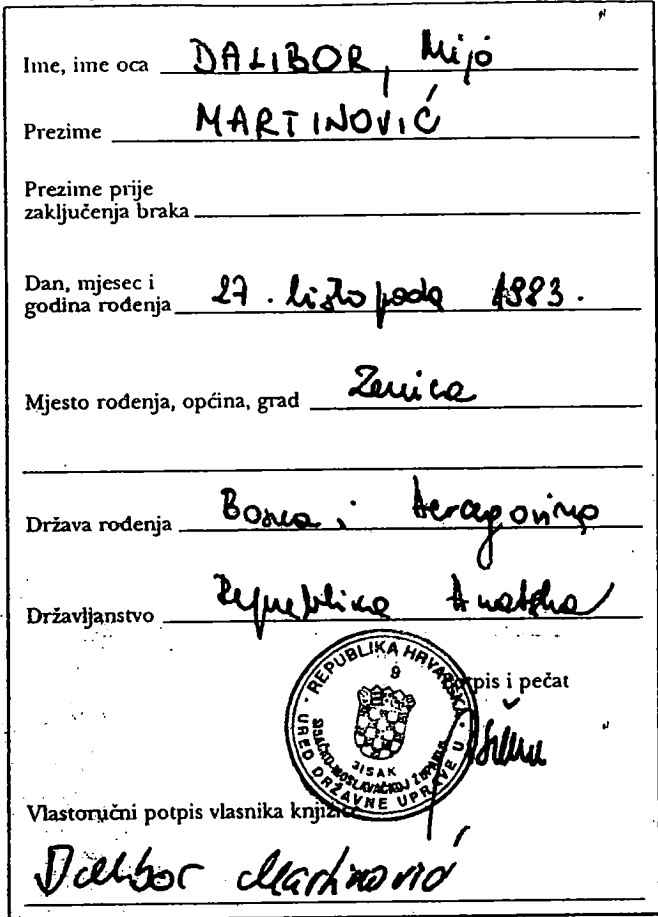 Ime, ime oca DALIBOR, Mijo
Prezime MARTINOVIĆ
Prezime prije
zaključenja braka
Dan, mjesec i
godina rođenja 27. listopada 1983.
Mjesto rođenja, općina, grad Zenica
Država rođenja Bosna i Hercegovina
Državljanstvo Republika Hrvatska
REPUBLIKA HRVATSKA
9
URED DRŽAVNE UPRAVE U
SISAČKO-MOSLAVAČKOJ ŽUPANIJI
SISAK
potpis i pečat
Vlastoručni potpis vlasnika knjižice
Dalibor Martinović